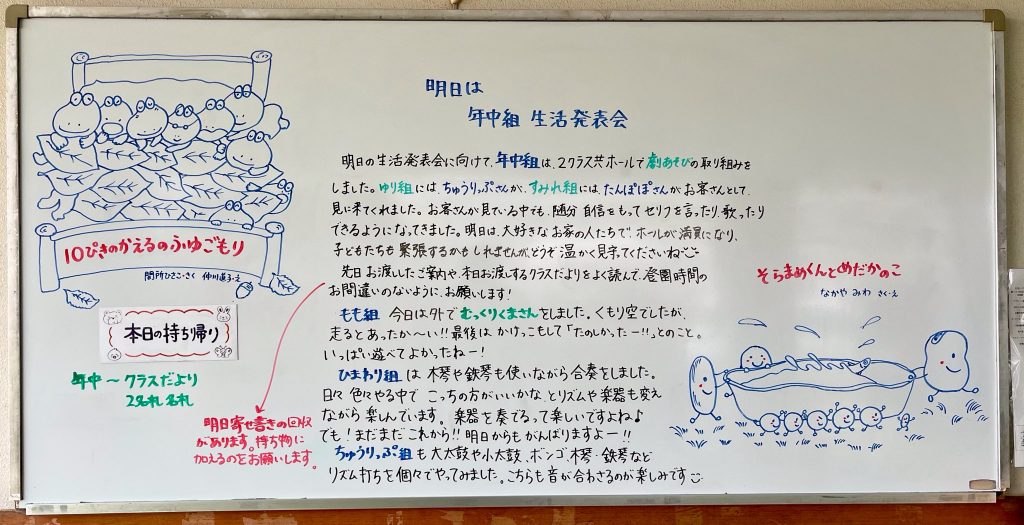 明日は
年中組 生活発表会
明日の生活発表会に向けて、年中組は、2クラス共ホールで劇あそびの取り組みを
しました。ゆり組には、ちゅうりっぷさんが、すみれ組には、たんぽぽさんがお客さんとして、
見に来てくれました。お客さんが見ている中でも、随分自信をもってセリフを言ったり、歌ったり
できるようになってきました。明日は、大好きなお家の人たちで、ホールが満員になり、
子どもたちも緊張するかもしれませんが、どうぞ温かく見守ってくださいね
先日お渡ししたご案内や、本日お渡しするクラスだよりをよく読んで、登園時間の
お間違いのないように、お願いします！
もも組 今日は外でむっくりくまさんをしました。くもり空でしたが、
走るとあったか〜い!!最後は かけっこもして「たのしかったー!!」とのこと。
いっぱい遊べてよかったねー！
ひまわり組は 木琴や鉄琴も使いながら合奏をしました。
日々 色々やる中で こっちの方がいいかな、とリズムや楽器も変え
ながら 楽しんでいます。楽器を奏でるって楽しいですよね♪
でも！まだまだこれから!!明日からもがんばりますよー!!
ちゅうりっぷ組も 大太鼓や小太鼓、ボンゴ、木琴・鉄琴など
リズム打ちを個々でやってみました。こちらも音が合わさるのが楽しみです
10ぴきのかえるのふゆごもり
間所ひさこ・さく 仲川道子・え
本日の持ち帰り
年中〜クラスだより
2名札 名札
明日寄せ書きの回収
があります。持ち物に
加えるのをお願いします。
そらまめくんとめだかのこ
なかや みわ さく・え